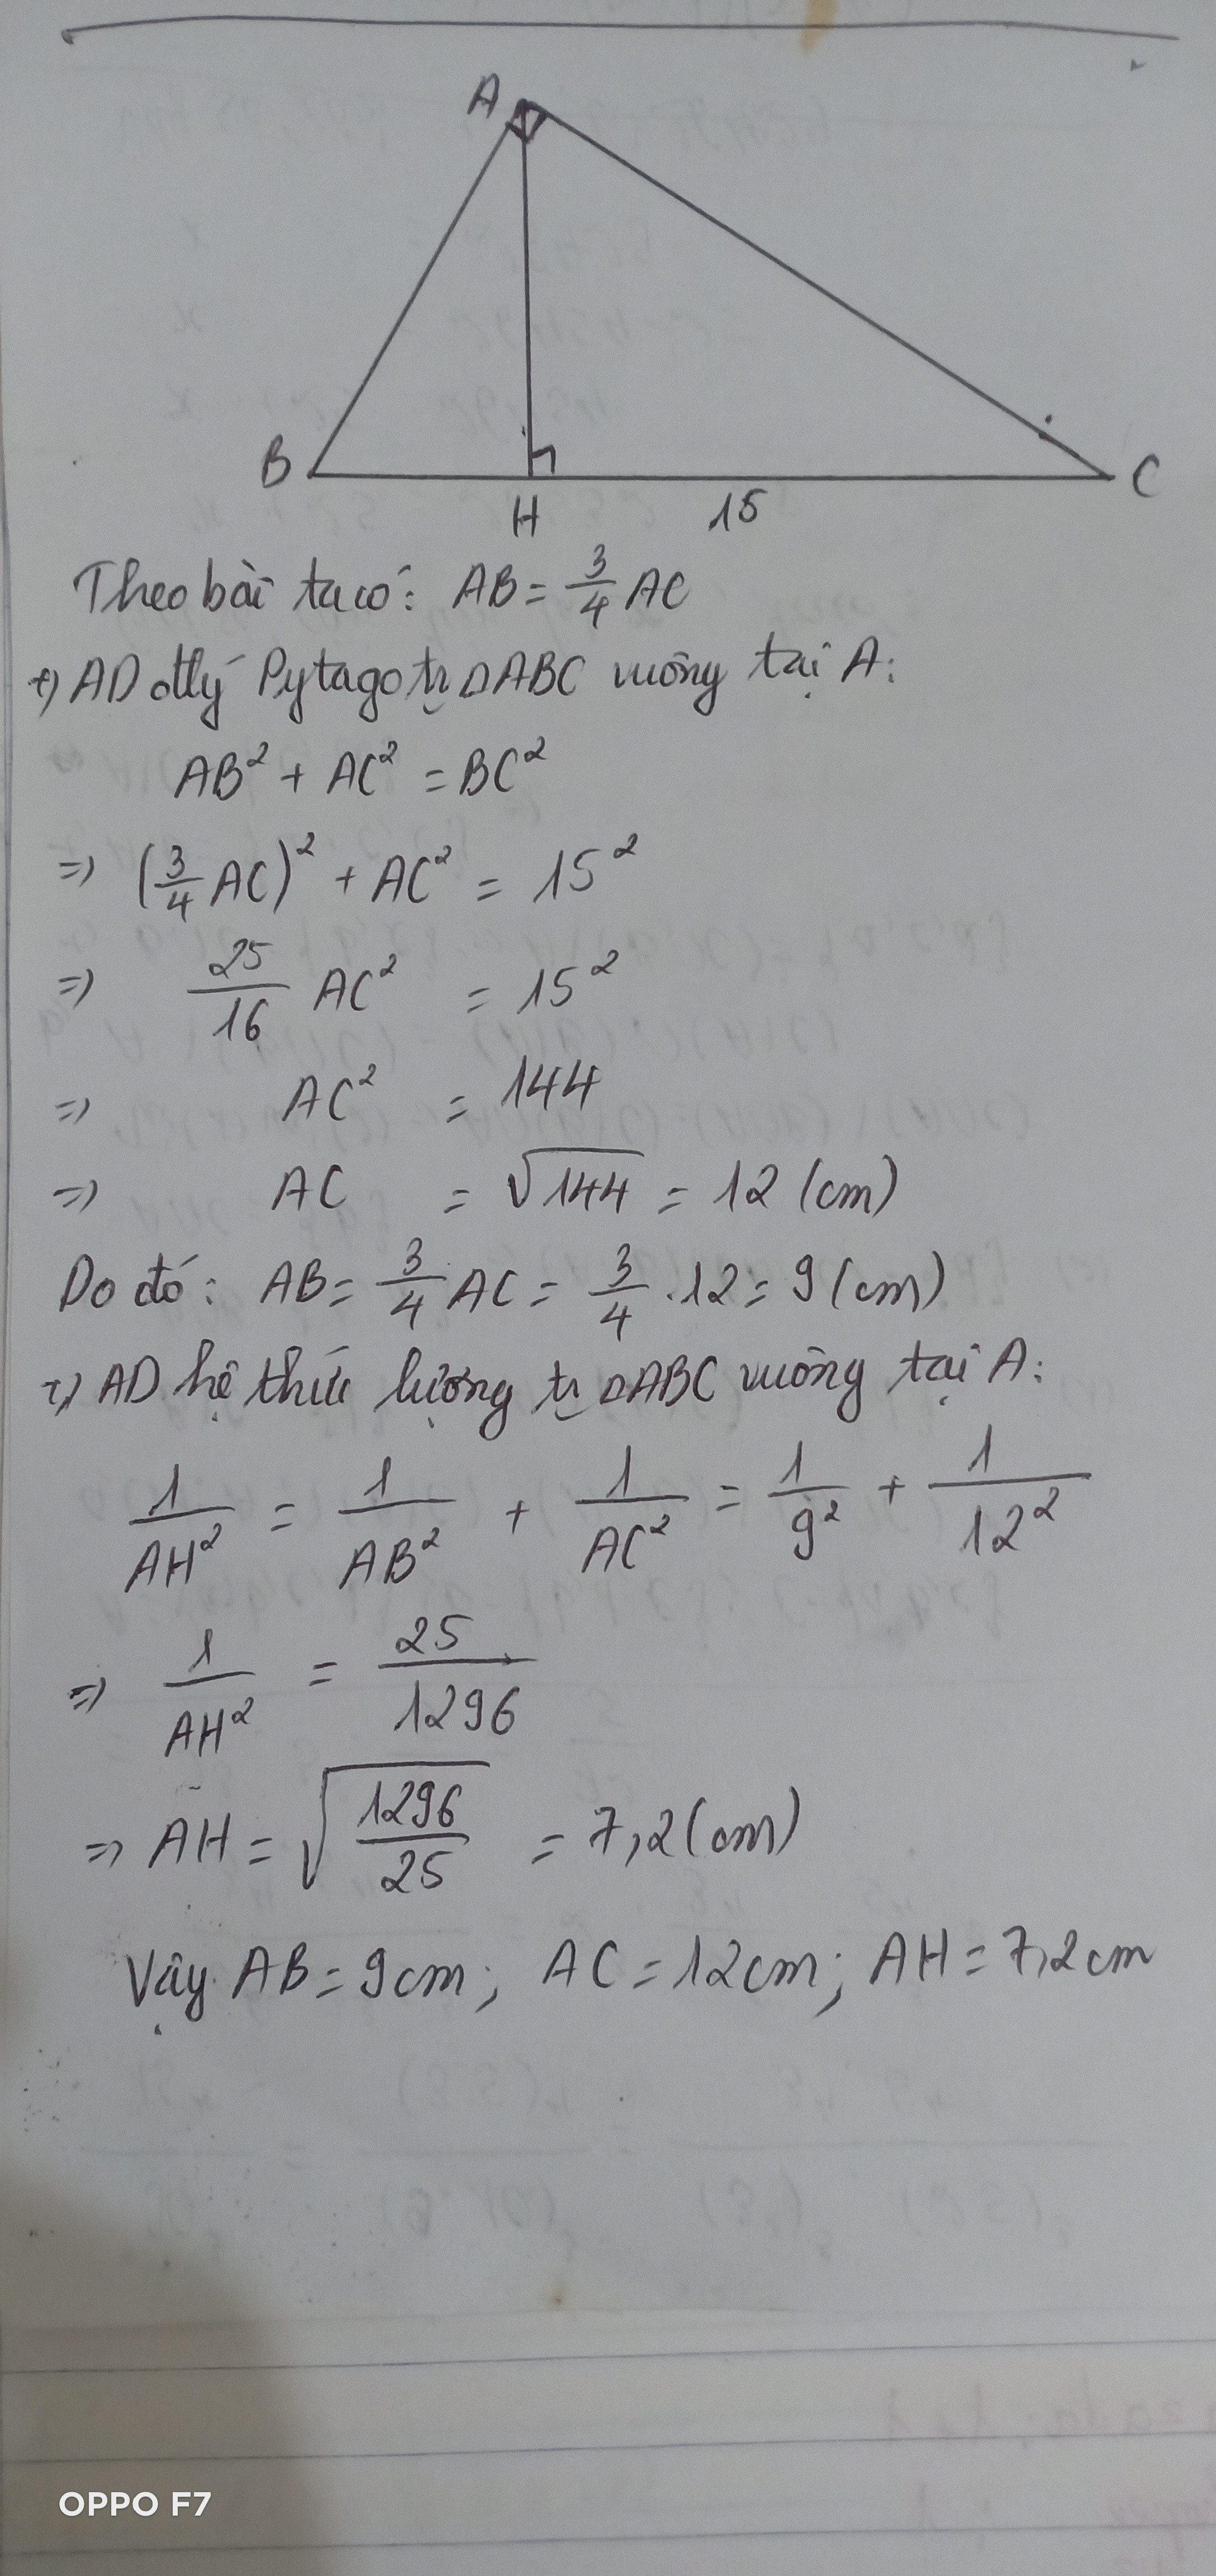 A
B
H
15
C
Theo bài ta có: AB = 3/4 AC
+) AD đlý Pytago tr ΔABC vuông tại A:
AB² + AC² = BC²
=> (3/4 AC)² + AC² = 15²
=> 25/16 AC² = 15²
=> AC² = 144
=> AC = √144 = 12 (cm)
Do đó: AB = 3/4 AC = 3/4 . 12 = 9 (cm)
+) AD hệ thức lượng tr ΔABC vuông tại A:
1/AH² = 1/AB² + 1/AC² = 1/9² + 1/12²
=> 1/AH² = 25/1296
=> AH = √(1296/25) = 7,2 (cm)
Vậy AB = 9cm; AC = 12cm; AH = 7,2cm
OPPO F7